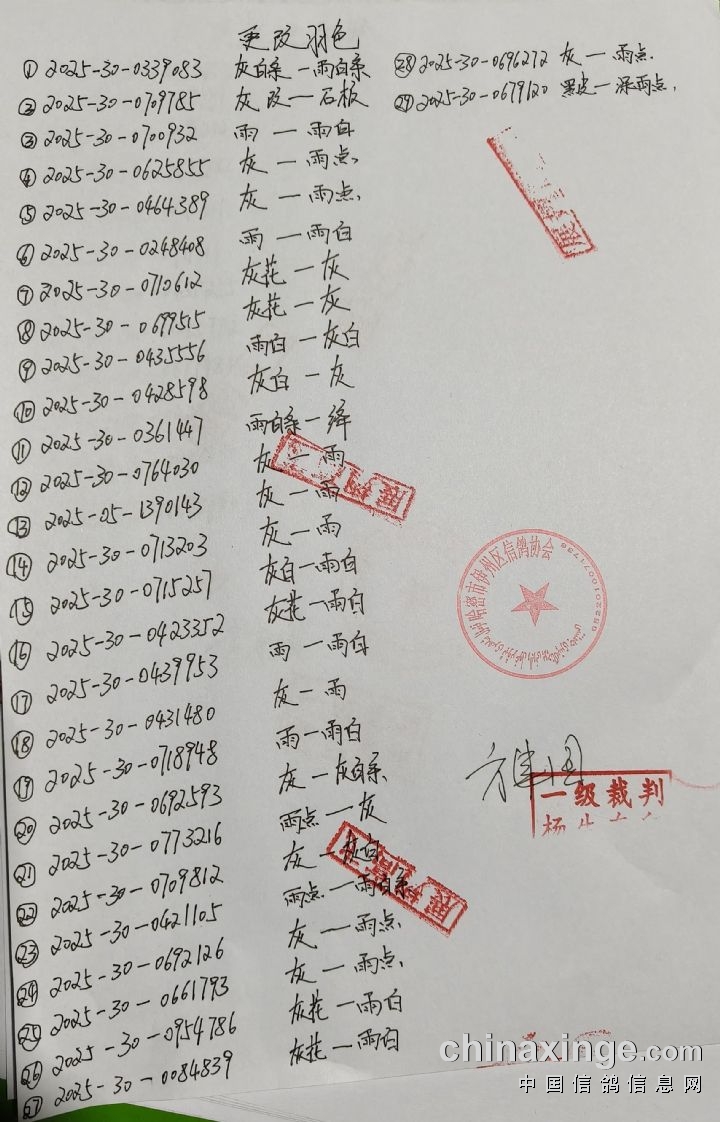 更改羽色
① 2025-30-0339083 灰白条—雨白条
② 2025-30-0709785 灰改—石板
③ 2025-30-0700932 雨—雨白
④ 2025-30-0625855 灰—雨点.
⑤ 2025-30-0464389 灰—雨点.
⑥ 2025-30-0248408 雨—雨白
⑦ 2025-30-0710612 灰花—灰
⑧ 2025-30-0699515 灰花—灰
⑨ 2025-30-0435556 雨白—灰白
⑩ 2025-30-0428598 灰白—灰
⑪ 2025-30-0361447 雨白条—绛
⑫ 2025-30-0764030 灰—雨
⑬ 2025-05-1390143 灰—雨
⑭ 2025-30-0713203 灰—雨
⑮ 2025-30-0715257 灰白—雨白
⑯ 2025-30-0423352 灰花—雨白
⑰ 2025-30-0439953 雨—雨白
⑱ 2025-30-0431480 灰—雨
⑲ 2025-30-0718948 雨—雨白
⑳ 2025-30-0692593 灰—灰白条
㉑ 2025-30-0773216 雨点—灰
㉒ 2025-30-0709812 灰—灰白
㉓ 2025-30-0421105 雨点—雨白条
㉔ 2025-30-0692126 灰—雨点.
㉕ 2025-30-0661793 灰—雨点.
㉖ 2025-30-0954786 灰花—雨白
㉗ 2025-30-0084839 灰花—雨白
㉘ 2025-30-0696272 灰—雨点.
㉙ 2025-30-0679120 黑皮—深雨点.
哈密市伊州区信鸽协会
一级裁判
chinaxinge.com
中国信鸽信息网